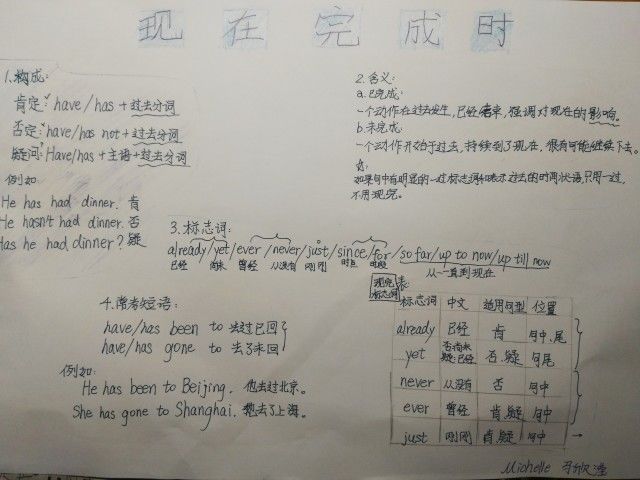 现在完成时
1.构成:
肯定: have/has + 过去分词
否定: have/has not + 过去分词
疑问: Have/has + 主语 + 过去分词
例如:
He has had dinner. 肯
He hasn't had dinner. 否
Has he had dinner? 疑
2.含义:
a.已完成:
一个动作在过去发生,已经结束,强调对现在的影响。
b.未完成:
一个动作开始于过去,持续到了现在,很有可能继续下去。
如果句中有明显的一过标志词和表示过去的时间状语,只用一过,
不用现完。
3.标志词:
already/yet/ever/never/just/since/for/so far/up to now/up till now
已经 尚未 曾经 从没有 刚刚 时点 时段 从一直到现在
4.常考短语:
have/has been to 去过已回
have/has gone to 去了未回
例如:
He has been to Beijing. 他去过北京。
She has gone to Shanghai. 她去了上海。
现完标志词表:
标志词 中文 适用句型 位置
already 已经 肯 句中,尾
yet 否:尚未 疑:已经 否.疑 句尾
never 从没有 否 句中
ever 曾经 肯.疑 句中
just 刚刚 肯.疑 句中
Michelle